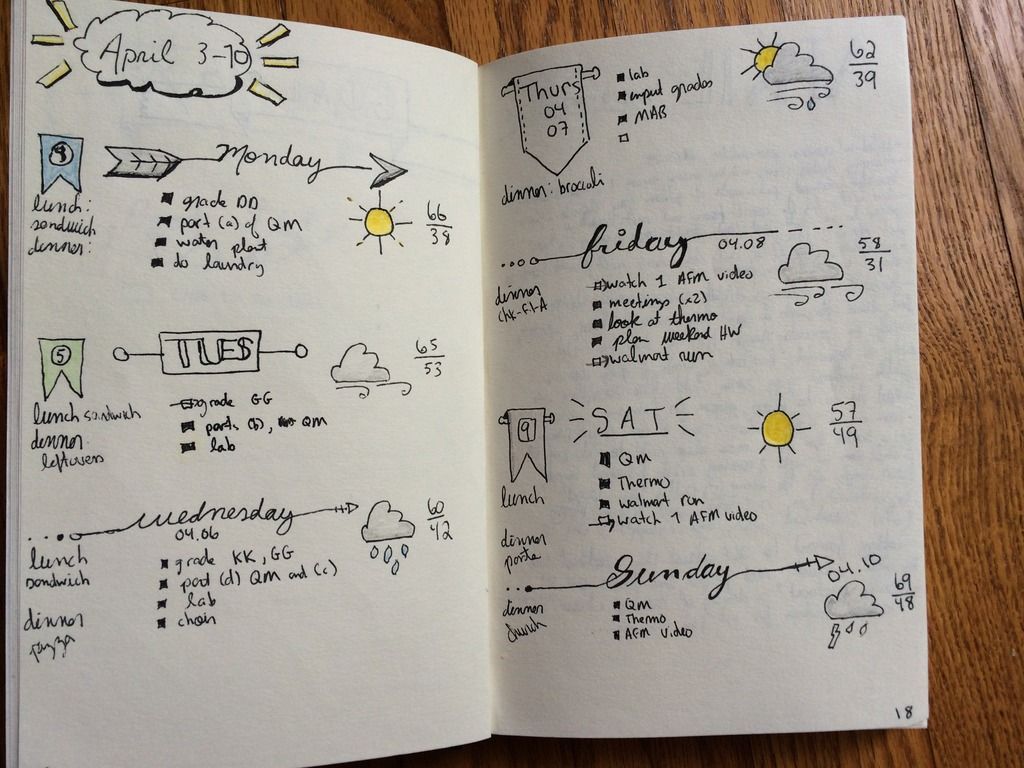 April 3-10
4
Monday
lunch:
sandwich
dinner:
grade DD
part (a) of QM
water plant
do laundry
66
38
5
TUES
lunch sandwich
dinner
leftovers
grade GG
parts (b), QM
lab
65
53
wednesday
04.06
lunch
sandwich
dinner
grade KK, GG
part (d) QM and (c)
lab
choir
60
42
Thurs
04
07
lab
input grades
MAB
dinner: broccoli
62
39
friday
04.08
dinner
chk-fl-A
watch 1 AFM video
meetings (x2)
look at thermo
plan weekend HW
walmart run
58
31
9
SAT
lunch
dinner
QM
Thermo
walmart run
watch 1 AFM video
57
49
Sunday
04.10
dinner
church
QM
Thermo
AFM video
69
48
18